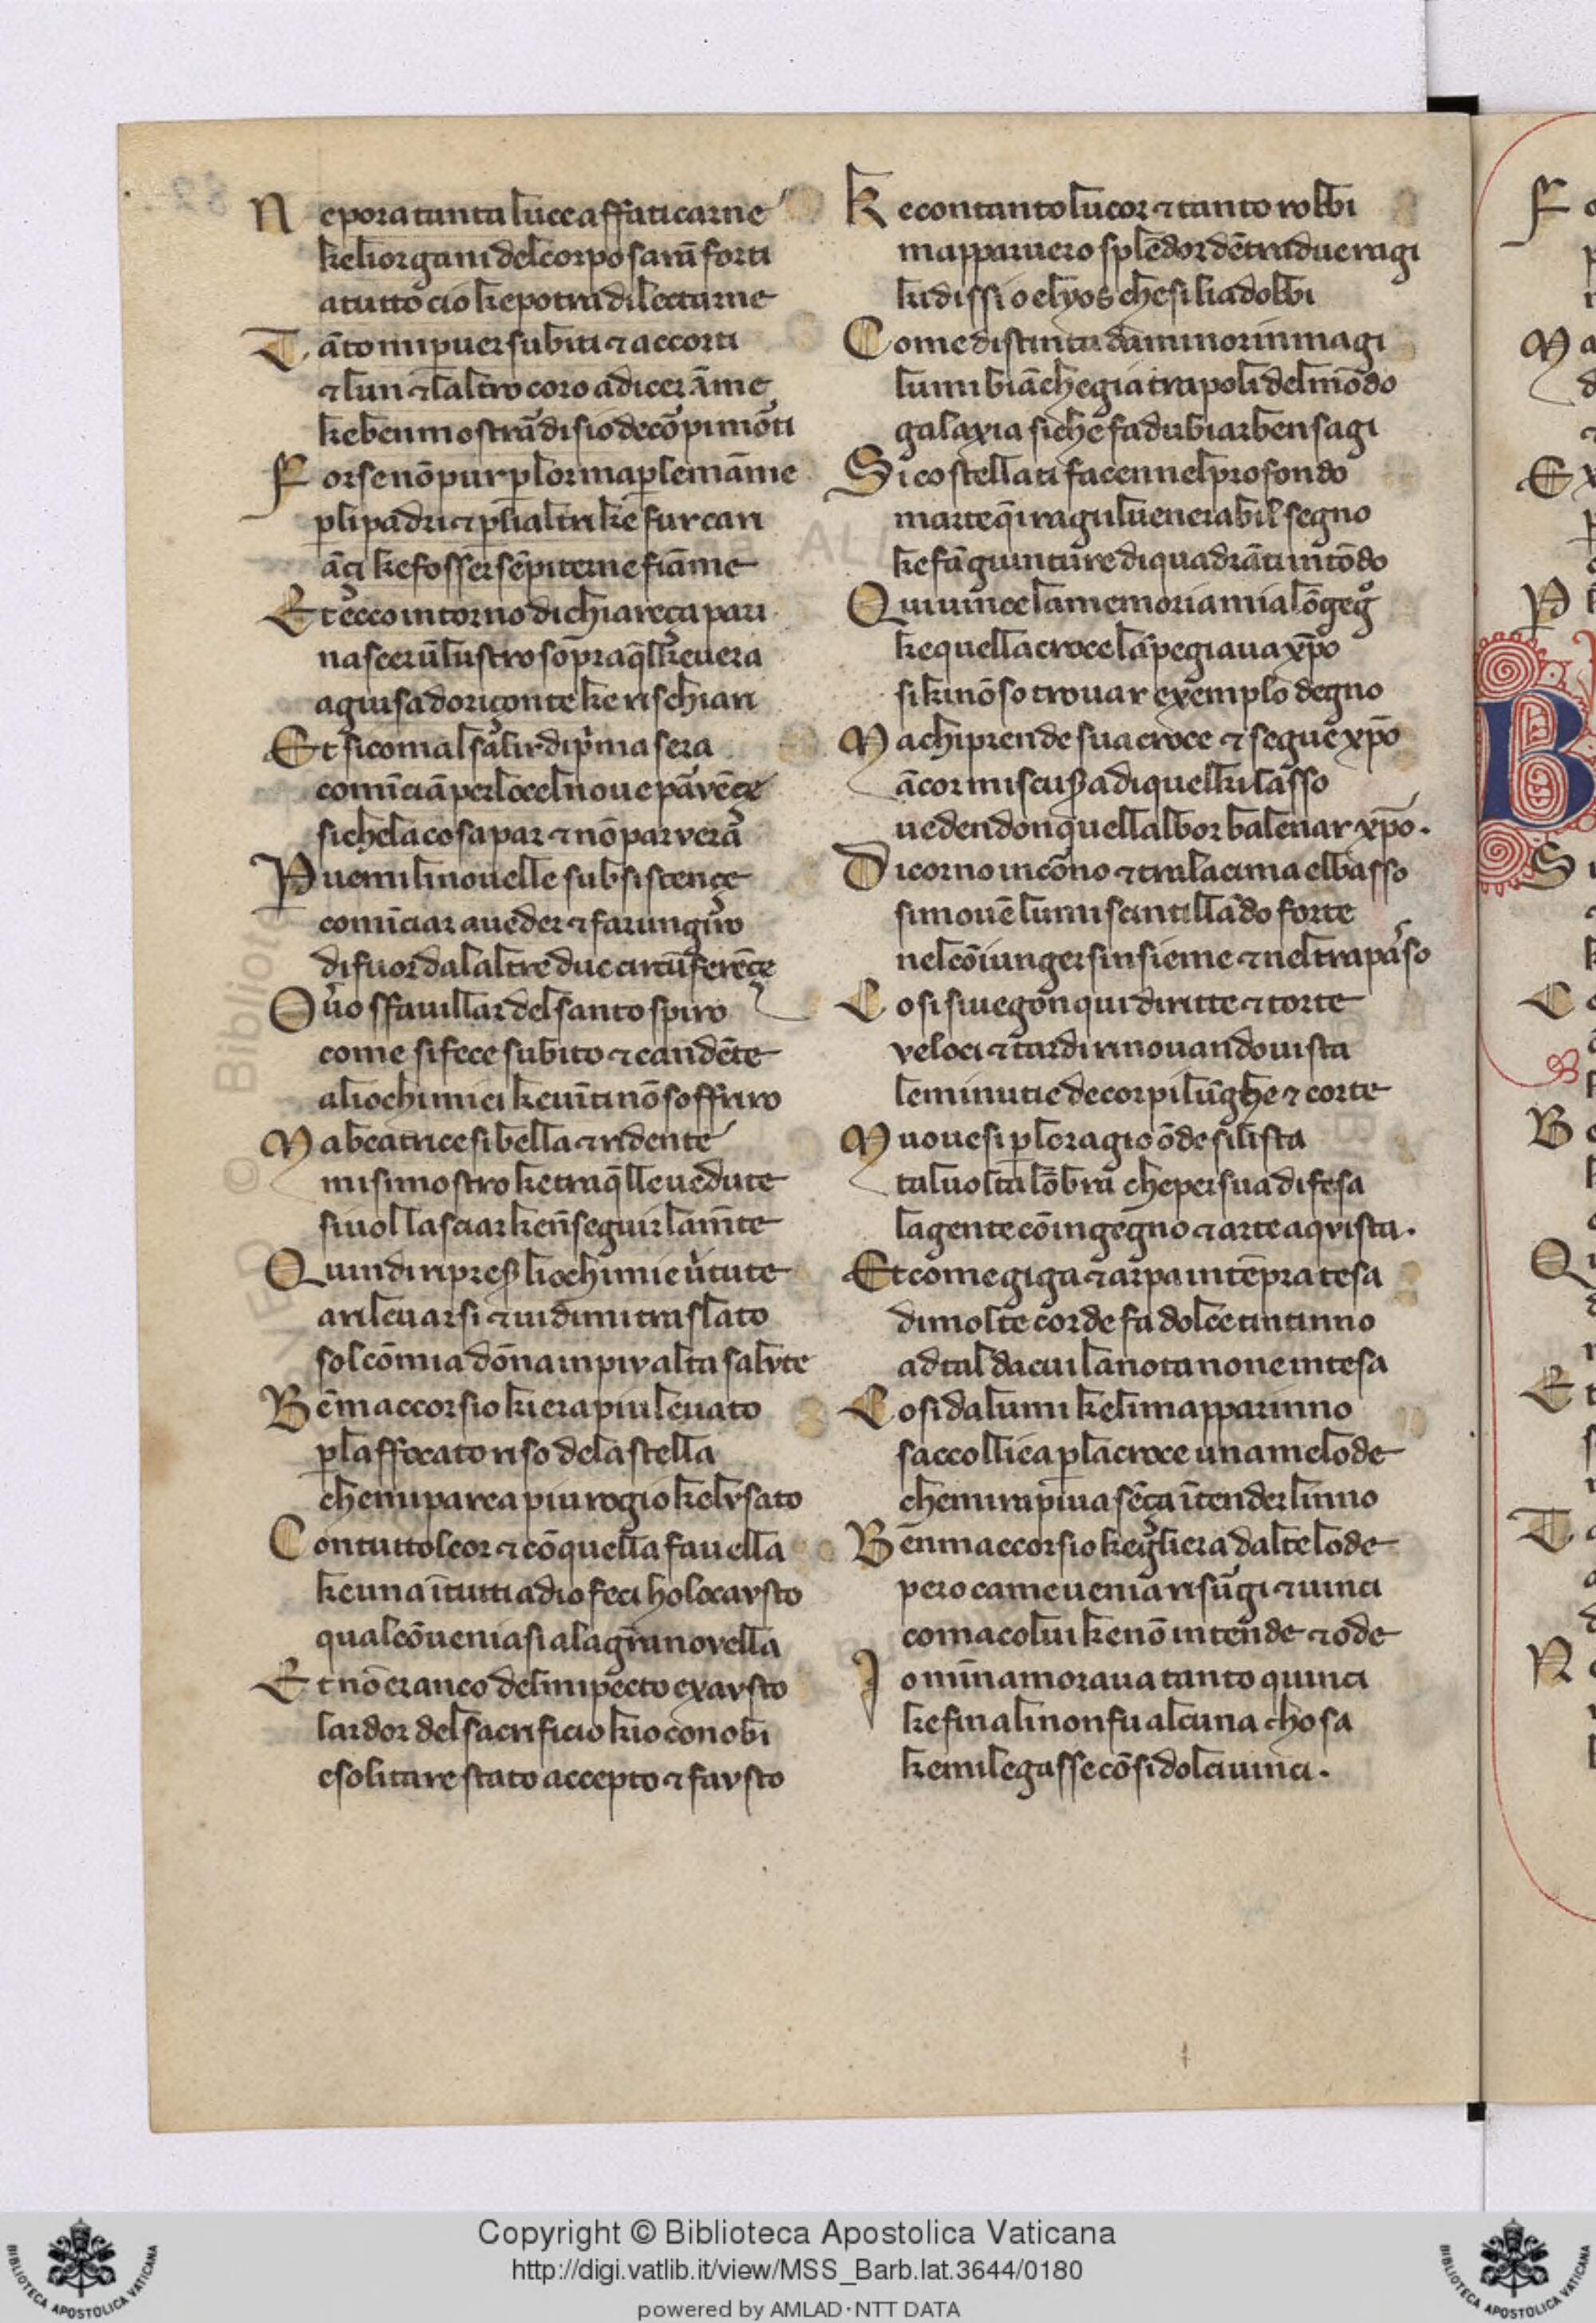 Ne pora tanta luce affaticarne
ke li organi del corpo sarā forti
a tutto cio ke potra dilectarne
Tāto mi paruer subiti ⁊ accorti
⁊ lun ⁊ laltro coro a dicer āme
ke ben mostrar̄ disio de cor̄pi mor̄ti
Forse nō pur p̱ lor ma p̱ le māme
p̱ li padri ⁊ p̱ li altri ke fur cari
āçi ke fosser sēpiterne fiāme
Et ecco intorno di chiareça pari
nascer ū lustro sopra q̄l ke vera
a guisa doriçonte ke rischiari
Et si come al salir di p̓ma sera
comīciā per lo cel nove parvēçe
si che la cosa par ⁊ nō par vera
Parvemi li novelle subsistençe
comīciar a veder ⁊ far un giro
di fuor da laltre due circūferēçe
O vero sfauillar del santo spiro
come si fece subito ⁊ candēte
a li ochi miei ke vīti nō soffriro
Ma beatrice si bella ⁊ ridente
mi si mostro ke tra q̄lle vedute
si vol lasciar ke n̄ seguir la m̄te
Quindi ripreser li ochi miei v̓tute
a rilevarsi ⁊ vidimi traslato
sol cō mia dōna in piv alta salvte
Bē maccorsio kiera piu levato
p̱ laffocato riso de la stella
che mi parea piu rogio ke lvsato
Con tuttol cor ⁊ cō quella favella
ke una ī tutti a dio feci holocavsto
qual cōveniasi a la gr̄a novella
Et nō eranco del mi pecto exavsto
lardor del sacrificio kio conobi
esso litare stato accepto ⁊ favsto
Ke con tanto lucor ⁊ tanto robbi
mapparuero splēdor dētra due ragi
kidissi o elyos che si li adobbi
Come distinta da minor in magi
lumi biāchegia tra poli del mōdo
galaxia si che fa dubiar ben sagi
Si costellati facen nel profondo
marte q̄i ragi il venerabil segno
ke fā giunture di quadrāti in tōdo
Qui vince la memoria mia lōgegno
ke quella croce lāpegiava xp̄o
sikī nō so trovar exemplo degno
Ma chi prende sua croce ⁊ segue xp̄o
ācor mi scusera di quelkī lasso
vedendo n quellalbor balenar xp̄o.
Di corno in corno ⁊ tra la cima el basso
si movē lumi scintillādo forte
nel cōiungersi insieme ⁊ nel trapasso
Cosi si vegon qui diritte ⁊ torte
veloci ⁊ tardi rinovando vista
le minutie de corpi lūghe ⁊ corte
Muovesi p̱ lo ragio ōde si lista
tal volta lōbra che per sua difesa
la gente cō ingegno ⁊ arte aqvista.
Et come giga ⁊ arpa in tēpra tesa
di molte corde fa dolce tintinno
ad tal da cui la nota non e intesa
Cosi da lumi ke li mapparinno
saccogliea p̱ la croce una melode
che mi rapiva sēça ītender linno
Ben maccorsio kegli era dalte lode
pero ca me venia risurgi ⁊ vinci
com a colui ke nō intende ⁊ ode
Io mīnamorava tanto quinci
ke fin a li non fu alcuna chosa
ke mi legasse cō si dolci vinci.
Copyright © Biblioteca Apostolica Vaticana
http://digi.vatlib.it/view/MSS_Barb.lat.3644/0180
powered by AMLAD·NTT DATA